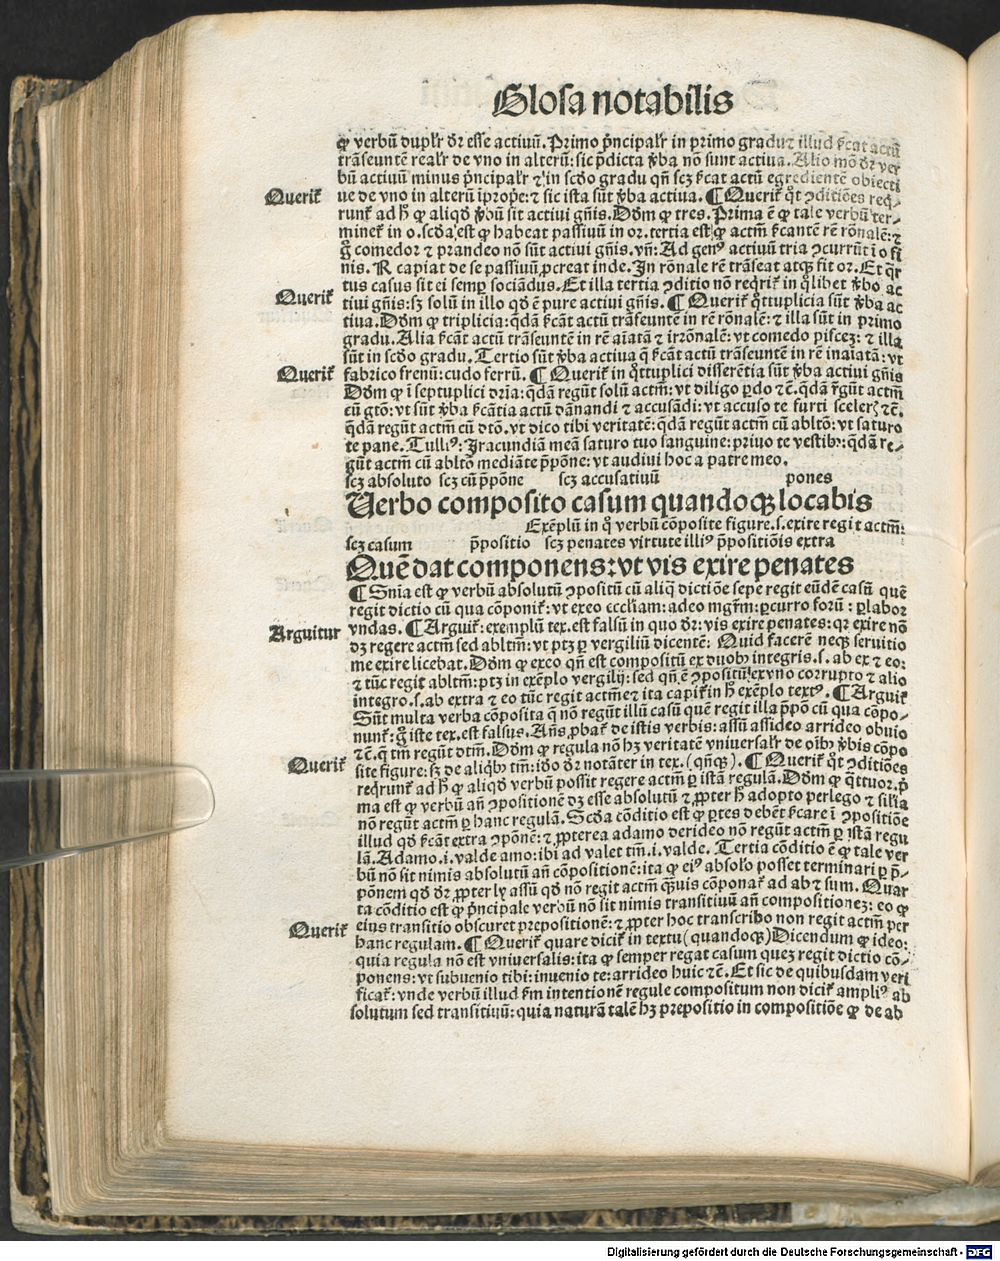 Glosa notabilis
ꝙ verbū duplr̄ dr̄ esse actiuū. Primo pͥncipalr̄ in primo gradu: ⁊ illud ſc̄at actū
trāseuntē realr̄ de vno in alterū: sic p̄dicta v̓ba nō sunt actiua. Alio mō dr̄ ver
bū actiuū minus pͥncipalr̄ ⁊ in scd̓o gradu qn̄ scz ſc̄at actū egredientē obiecti
Querit᷑ ue de vno in alterū īprope: ⁊ sic ista sūt v̓ba actiua. ¶ Querit᷑ qͦt ꝯditiōes req̄
runt᷑ ad hͦ ꝙ aliqd̓ v̓bū sit actiui gn̄is. Dd̓m ꝙ tres. Prima ē ꝙ tale verbū ter-
minet᷑ in o. scd̓a est ꝙ habeat passiuū in or. tertia est ꝙ actm̄ ſc̄antē rē rōnalē: ⁊
gͦ comedor ⁊ prandeo nō sūt actiui gn̄is. vn̄: Ad genꝰ actiuū tria ꝯcurrūt ī o fi
nis. R capiat de se passiuū ꝓcreat inde. In rōnale rē trāseat atqꝫ fit or. Et qr̄
tus casus sit ei semꝑ sociādus. Et illa tertia ꝯditio nō reqͥrit᷑ in qͦlibet v̓bo ac
Querit᷑ tiui gn̄is: sꝫ solū in illo qd̓ ē pure actiui gn̄is. ¶ Querit᷑ qͦttuplicia sūt v̓ba ac
tiua. Dd̓m ꝙ triplicia: qdā ſc̄āt actū trāseuntē in rē rōnalē: ⁊ illa sūt in primo
gradu. Alia ſc̄āt actū trāseuntē in rē aīatā ⁊ irrōnalē: vt comedo piscez: ⁊ illa
sūt in scd̓o gradu. Tertio sūt v̓ba actiua q̄ ſc̄āt actū trāseuntē in rē inaīatā: vt
Querit᷑ fabrico frenū: cudo ferrū. ¶ Querit᷑ in qͦttuplici differētia sūt v̓ba actiui gn̄is
Dd̓m ꝙ ī septuplici dr̄ia: qdā regūt solū actm̄: vt diligo ꝑdo ⁊c̄. qdā r̄gūt actm̄
cū gtō: vt sūt v̓ba ſc̄antia actū dānandi ⁊ accusādi: vt accuso te furti scelerꝭ ⁊c̄.
qdā regūt actm̄ cū dtō. vt dico tibi veritatē: qdā regūt actm̄ cū abltō: vt saturo
te pane. Tulliꝰ: Iracundiā meā saturo tuo sanguine: priuo te vestibꝰ: qdā re-
gūt actm̄ cū abltō mediāte p̄pōne: vt audiui hoc a patre meo.
scz absoluto scz cū p̄pōne scz accusatiuū pones
Uerbo composito casum quandoqꝫ locabis
Exēplū in qͦ verbū cōposite figure. s. exire regit actm̄:
scz casum p̄positio scz penates virtute illiꝰ p̄positiōis extra
Quē dat componens: vt vis exire penates
¶ Snīa est ꝙ verbū absolutū ꝯpositū cū aliq̄ dictiōe sepe regit eūdē casū quē
regit dictio cū qua cōponit᷑: vt exeo ecclīam: adeo mgr̄m: ꝑcurro forū: ꝑlabor
Arguitur vndas. ¶ Arguit᷑: exemplū tex. est falsū in quo dr̄: vis exire penates: qꝛ exire nō
dꝫ regere actm̄ sed abltm̄: vt ptꝫ ꝑ vergiliū dicentē: Quid facerē neqꝫ seruitio
me exire licebat. Dd̓m ꝙ exeo qn̄ est compositū ex duobꝰ integris. s. ab ex ⁊ eo:
⁊ tūc regit abltm̄: ptꝫ in exēplo vergilij: sed qn̄ ē ꝯpositū ex vno corrupto ⁊ alio
integro. s. ab extra ⁊ eo tūc regit actm̄ ⁊ ita capit᷑ in hͦ exēplo textꝰ. ¶ Arguit᷑
Sūt multa verba cōposita q̄ nō regūt illū casū quē regit illa p̄pō cū qua cōpo-
nunt᷑: gͦ iste tex. est falsus. Añs ꝓbat᷑ de istis verbis: assū assideo arrideo obuio
⁊c̄. q̄ tm̄ regūt dtm̄. Dd̓m ꝙ regula nō hꝫ veritatē vniuersalr̄ de oībꝰ v̓bis cōpo
Querit᷑ site figure: sꝫ de aliqbꝰ tm̄: iō dr̄ notāter in tex. (qn̄qꝫ). ¶ Querit᷑ qͦt ꝯditiōes
reqͥrunt᷑ ad hͦ ꝙ aliqd̓ verbū possit regere actm̄ ꝑ istā regulā. Dd̓m ꝙ qͣttuor. pͥ
ma est ꝙ verbū añ ꝯpositionē dꝫ esse absolutū ⁊ ꝓpter hͦ adopto perlego ⁊ silīa
nō regūt actm̄ ꝑ hanc regulā. Scd̓a cōditio est ꝙ ꝑtes debēt ſc̄are ī ꝯpositiōe
illud qd̓ ſc̄āt extra ꝯponē: ⁊ ꝓpterea adamo derideo nō regūt actm̄ ꝑ istā regu
lā. Adamo. i. valde amo: ibi ad valet tm̄. i. valde. Tertia cōditio ē ꝙ tale ver
bū nō sit nimis absolutū añ cōpositionē: ita ꝙ eiꝰ absolō posset terminari ꝑ p̄-
pōnem qd̓ dr̄ ꝓpter ly assū qd̓ nō regit actm̄ qͣuis cōponat᷑ ad ab ⁊ sum. Quar
ta cōditio est ꝙ pͥncipale verbū nō sit nimis transitiuū añ compositionez: eo ꝙ
Querit᷑ eius transitio obscuret prepositionē: ⁊ ꝓpter hoc transcribo non regit actm̄ per
hanc regulam. ¶ Querit᷑ quare dicit᷑ in textu (quandoqꝫ) Dicendum ꝙ ideo:
quia regula nō est vniuersalis: ita ꝙ semper regat casum quez regit dictio cō-
ponens: vt subuenio tibi: inuenio te: arrideo huic ⁊c̄. Et sic de quibusdam veri
ficat᷑: vnde verbū illud ſm intentionē regule compositum non dicit᷑ ampliꝰ ab
solutum sed transitiuū: quia naturā talē hꝫ prepositio in compositiōe ꝙ de ab
Digitalisierung gefördert durch die Deutsche Forschungsgemeinschaft - DFG